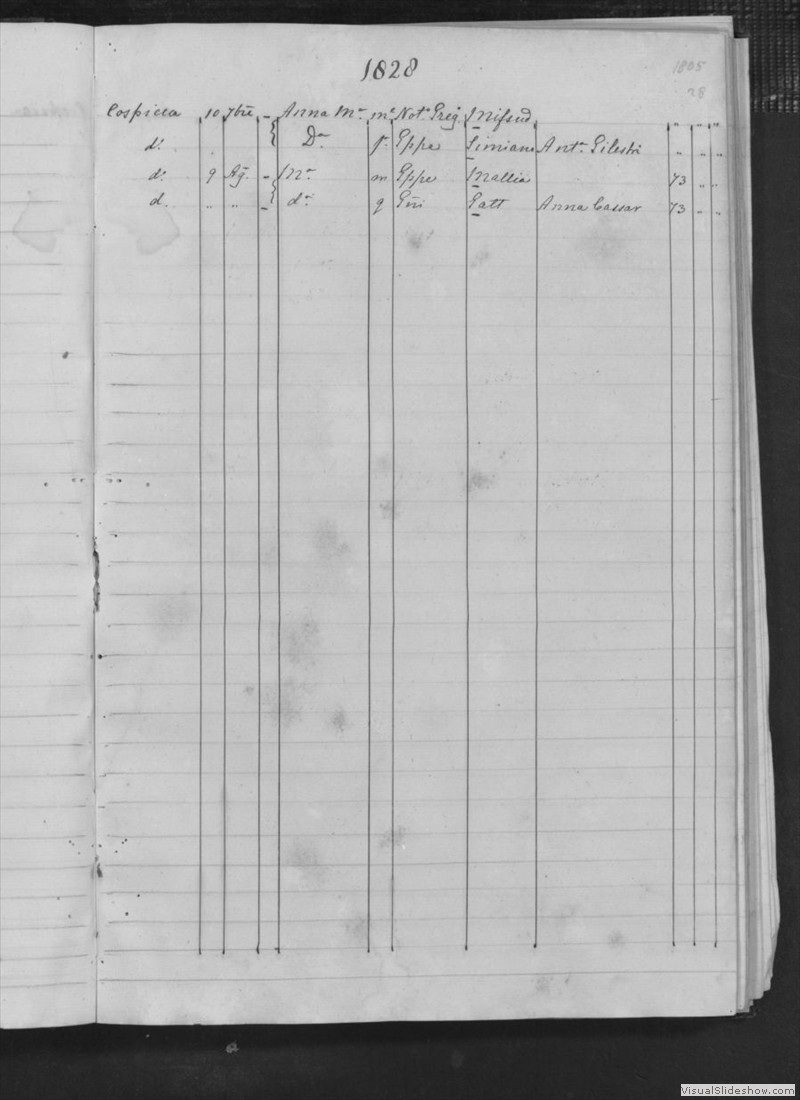 1828
1805
28
Cospicua 10 7bre - Anna Mª mª Notº Greg. Mifsud " " "
dª { Dª fª Gppe Simiana Antª " " "
dª 9 Ag. - Mª m Gppe Mallia 73 " "
d. " " - { dª q Gni Gatt Anna Cassar 73 " "
VisualSlideshow.com